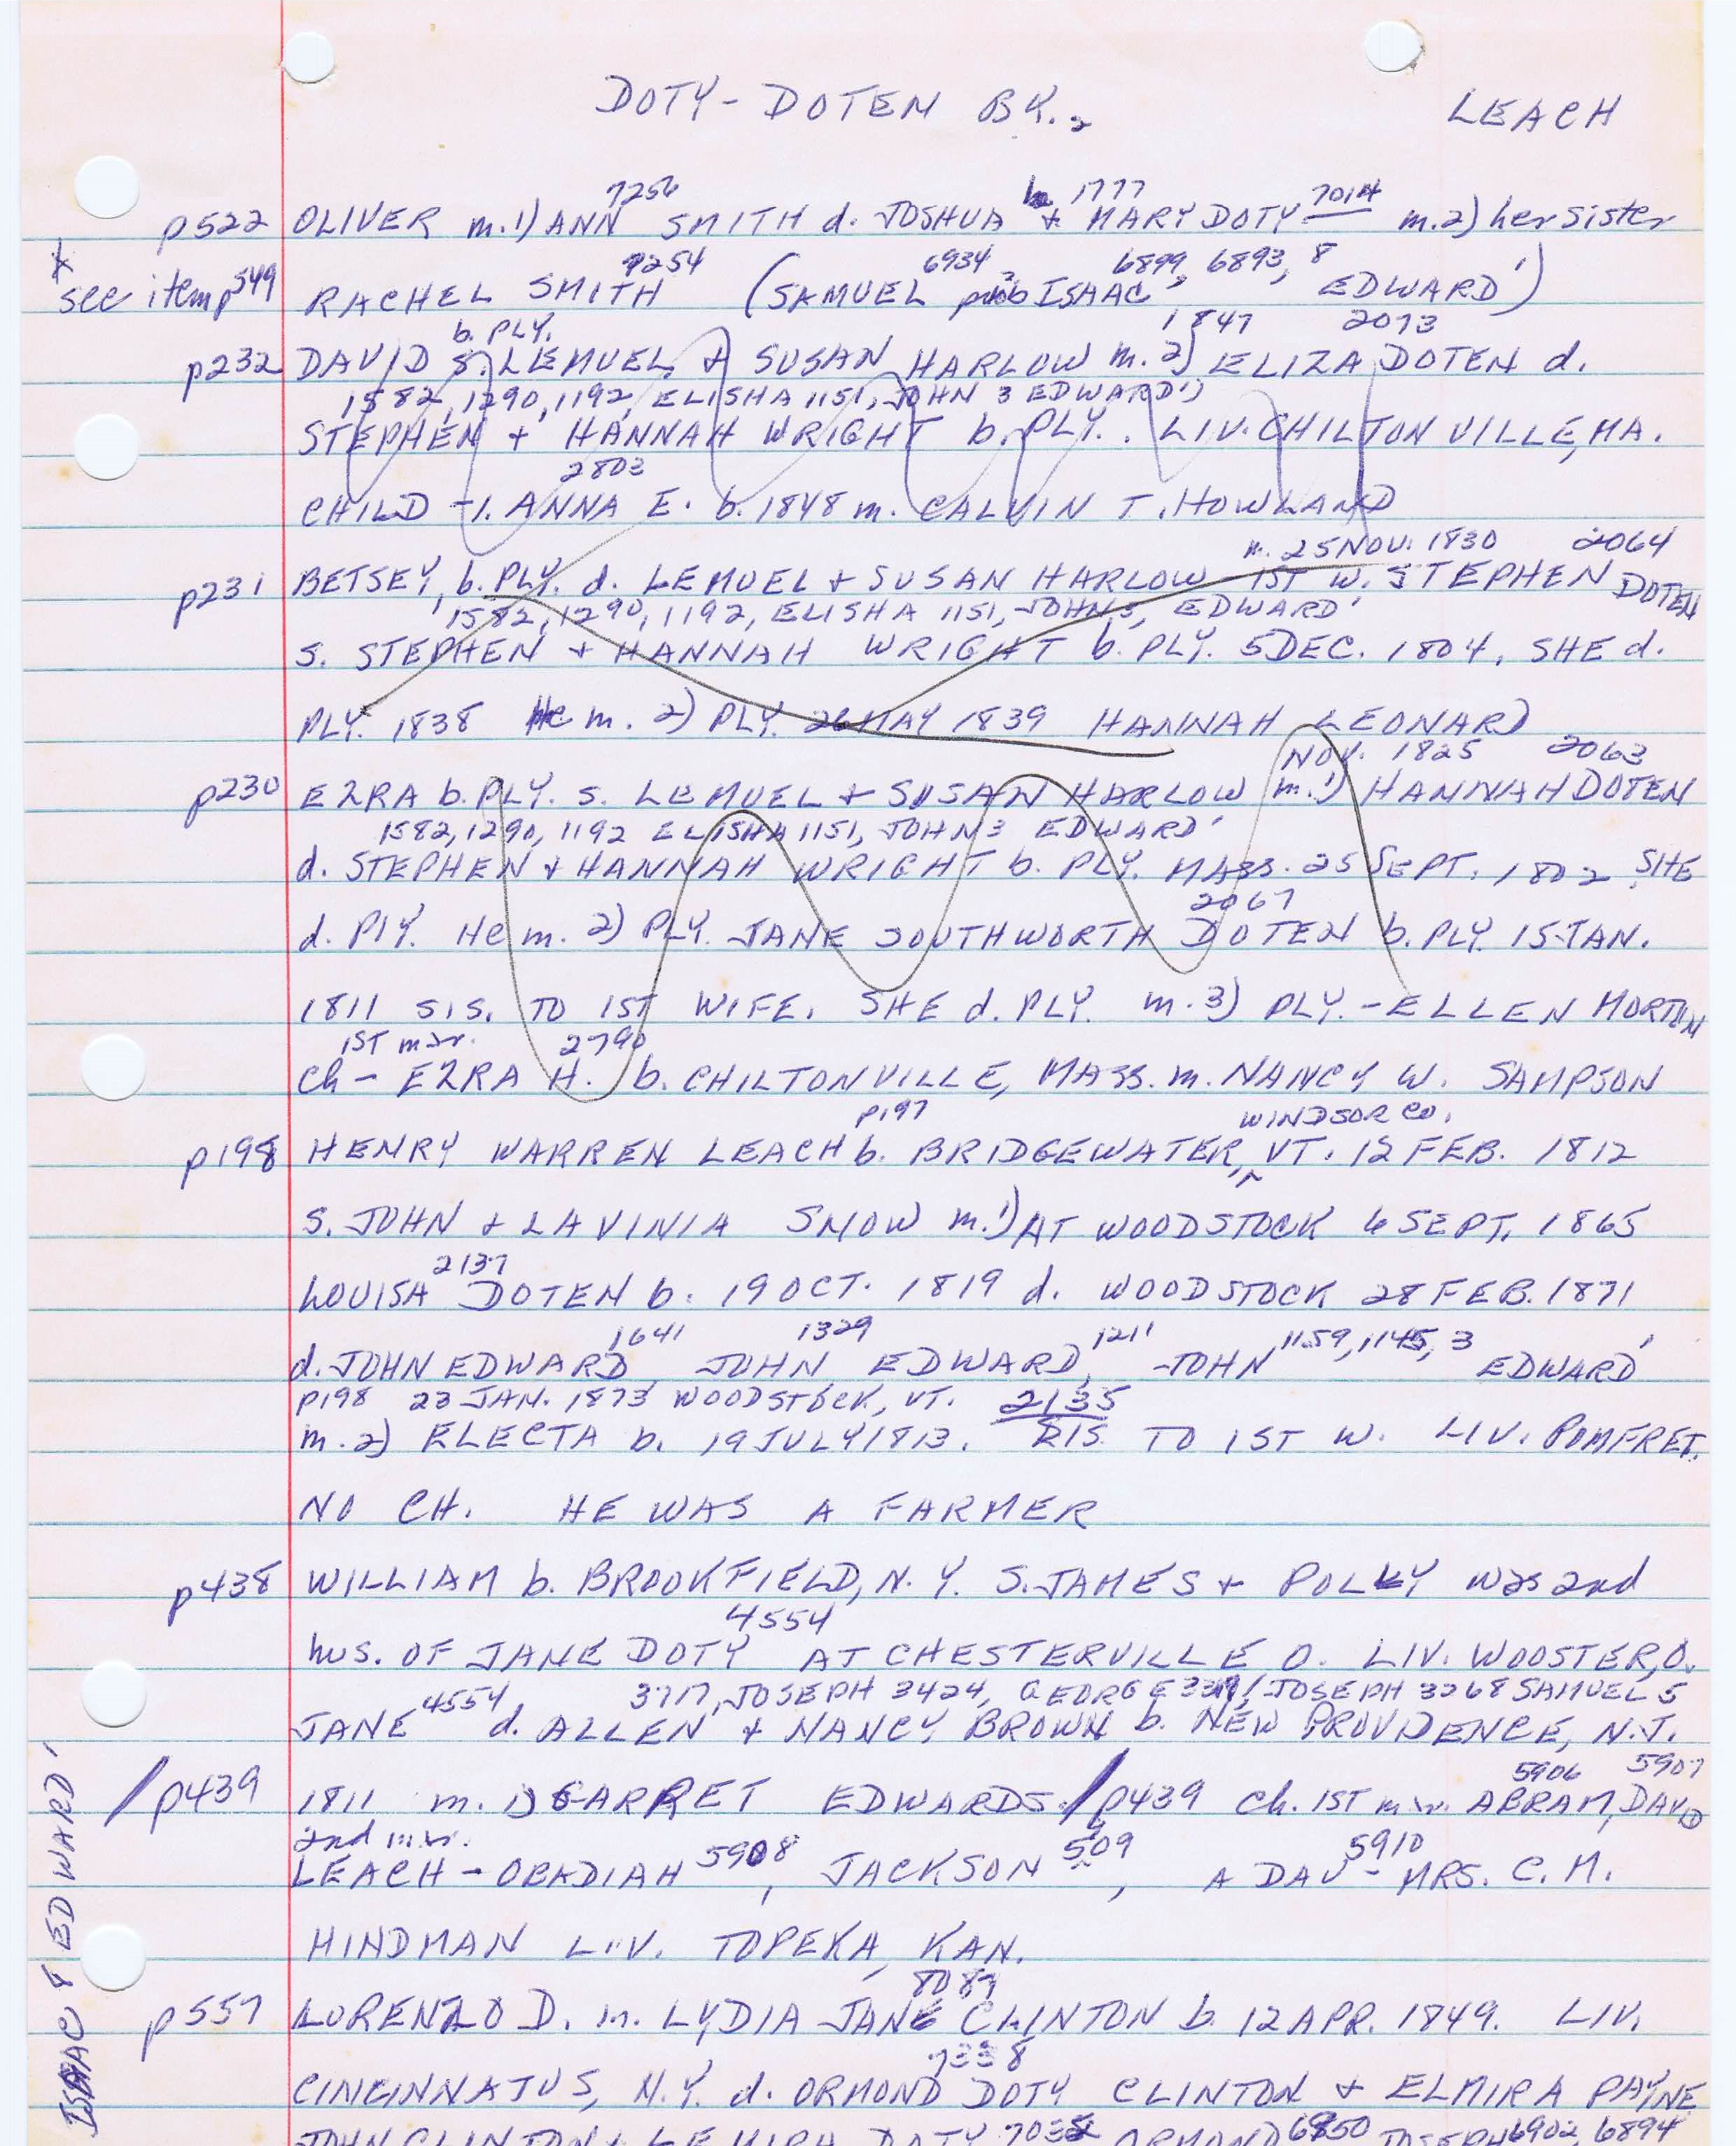 DOTY - DOTEN BK., LEACH
7256 1777 7014
p522 OLIVER m. 1) ANN SMITH d. JOSHUA & MARY DOTY m. 2) her sister
7254 6934 6899, 6893, 8
see item p549 RACHEL SMITH (SAMUEL, prob ISAAC, EDWARD')
b. PLY. 1847 2073
p232 DAVID S. LEMUEL & SUSAN HARLOW m. 2) ELIZA DOTEN d.
1582, 1290, 1192, ELISHA 1151, JOHN 3 EDWARD')
STEPHEN + HANNAH WRIGHT b. PLY. LIV. CHILTONVILLE, MA.
2803
CHILD - 1. ANNA E. b. 1848 m. CALVIN T. HOWLAND
m. 25 NOV. 1830 2064
p231 BETSEY, b. PLY. d. LEMUEL + SUSAN HARLOW - 1ST W. STEPHEN DOTEN
1582, 1290, 1192, ELISHA 1151, JOHN 3, EDWARD'
S. STEPHEN + HANNAH WRIGHT b. PLY. 5 DEC. 1804. SHE d.
PLY. 1838 He m. 2) PLY. 26 MAY 1839 HANNAH LEONARD
NOV. 1825 2063
p230 EZRA b. PLY. S. LEMUEL + SUSAN HARLOW m. 1) HANNAH DOTEN
1582, 1290, 1192 ELISHA 1151, JOHN 3 EDWARD'
d. STEPHEN + HANNAH WRIGHT b. PLY. MASS. 25 SEPT. 1802 SHE
2067
d. PLY. He m. 2) PLY. JANE SOUTHWORTH DOTEN b. PLY. 15 JAN.
1811 SIS. TO 1ST WIFE. SHE d. PLY. m. 3) PLY. - ELLEN MORTON
1ST mar. 2790
Ch - EZRA H. b. CHILTONVILLE, MASS. m. NANCY W. SAMPSON
p197 WINDSOR CO.
p198 HENRY WARREN LEACH b. BRIDGEWATER, VT. 12 FEB. 1812
S. JOHN + LAVINIA SNOW m. 1) AT WOODSTOCK 6 SEPT. 1865
2137
LOUISA DOTEN b. 19 OCT. 1819 d. WOODSTOCK 28 FEB. 1871
1641 1329 1211 1159, 1145, 3
d. JOHN EDWARD, JOHN EDWARD, JOHN EDWARD'
p198 23 JAN. 1873 WOODSTOCK, VT. 2135
m. 2) ELECTA b. 19 JULY 1813. SIS TO 1ST W. LIV. POMFRET.
NO CH. HE WAS A FARMER
p438 WILLIAM b. BROOKFIELD, N.Y. S. JAMES + POLLY was 2nd
4554
hus. OF JANE DOTY AT CHESTERVILLE O. LIV. WOOSTER, O.
4554 3717, JOSEPH 3424, GEORGE JOSEPH 3268 SAMUEL 5
JANE d. ALLEN + NANCY BROWN b. NEW PROVIDENCE, N.J.
5906 5907
/p439 1811 m. 1) GARRET EDWARDS. /p439 ch. 1ST mar. ABRAM, DAVID
2nd mar. 5908 509 5910
LEACH - OBADIAH, JACKSON, A DAU - MRS. C. M.
HINDMAN LIV. TOPEKA, KAN.
8087
p557 LORENZO D. m. LYDIA JANE CLINTON b. 12 APR. 1849. LIV.
7338
CINCINNATUS, N.Y. d. ORMOND DOTY CLINTON + ELMIRA PAYNE
JOHN CLINTON + DOTY ORMOND JOSEPH 6902 6894
ISAAC 8 EDWARD'